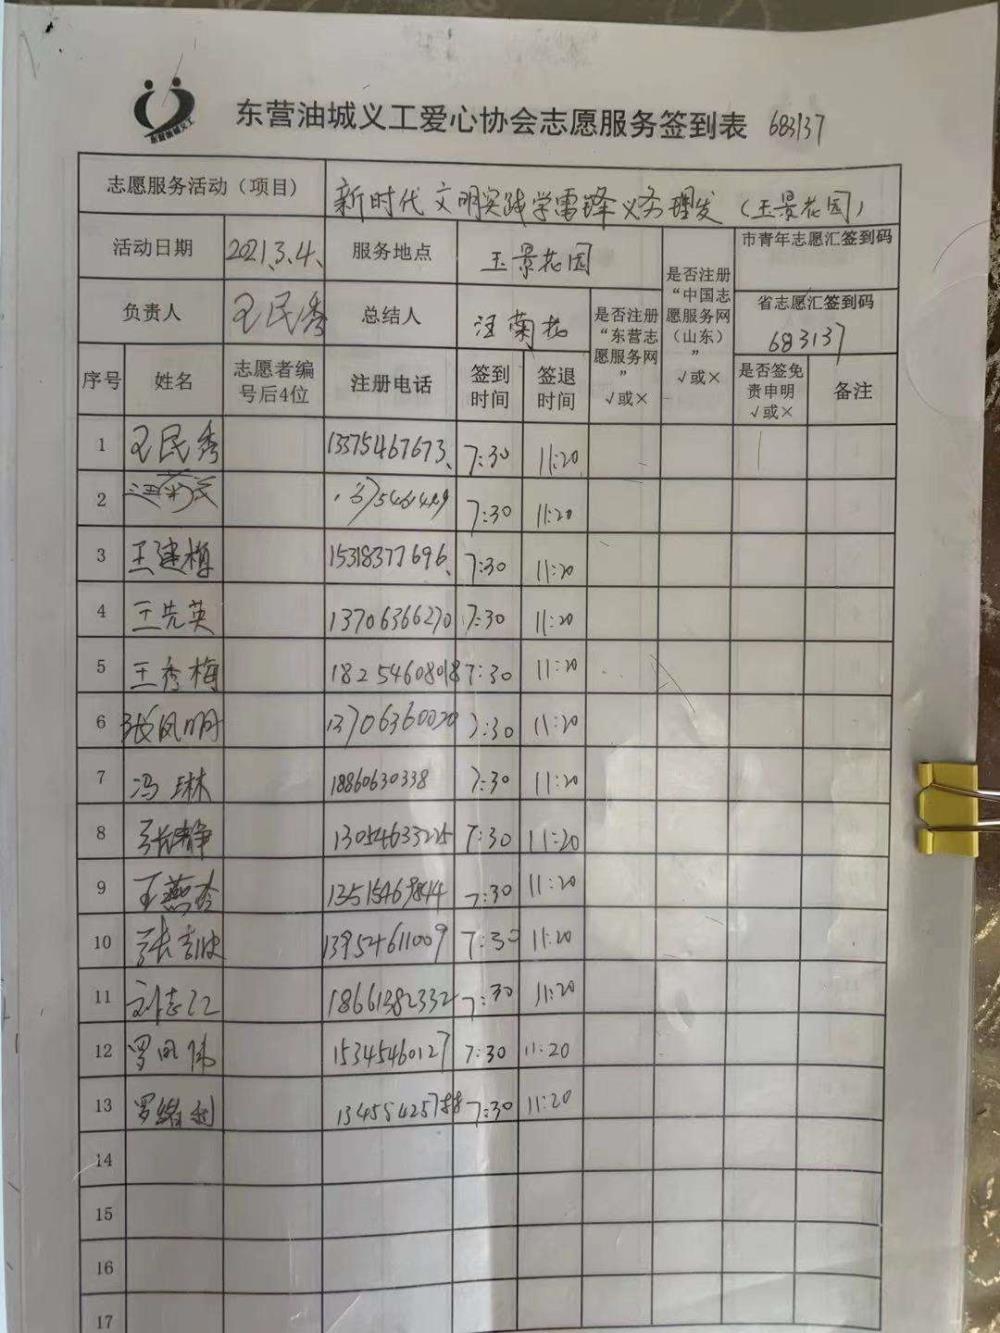 东营油城义工
东营油城义工爱心协会志愿服务签到表 683137
志愿服务活动（项目） 新时代文明实践学雷锋义务理发（玉景花园）
活动日期 2021.3.4. 服务地点 玉景花园 是否注册“中国志愿服务网（山东）” √或× 市青年志愿汇签到码
负责人 王民秀 总结人 汪菊花 是否注册“东营志愿服务网” √或× 省志愿汇签到码 683137
序号 姓名 志愿者编号后4位 注册电话 签到时间 签退时间 是否签免责申明 √或× 备注
1 王民秀 13375467673 7:30 11:20
2 7:30 11:20
3 王建梅 15318377696 7:30 11:20
4 王先英 13706366270 7:30 11:20
5 王秀梅 18254608018 7:30 11:20
6 张凤明 7:30 11:20
7 冯琳 18860630338 7:30 11:20
8 张静 13054633225 7:30 11:20
9 王燕 7:30 11:20
10 张 13954611009 7:30 11:20
11 刘志 18661382332 7:30 11:20
12 罗凤伟 15345460127 7:30 11:20
13 罗 7:30 11:20
14
15
16
17